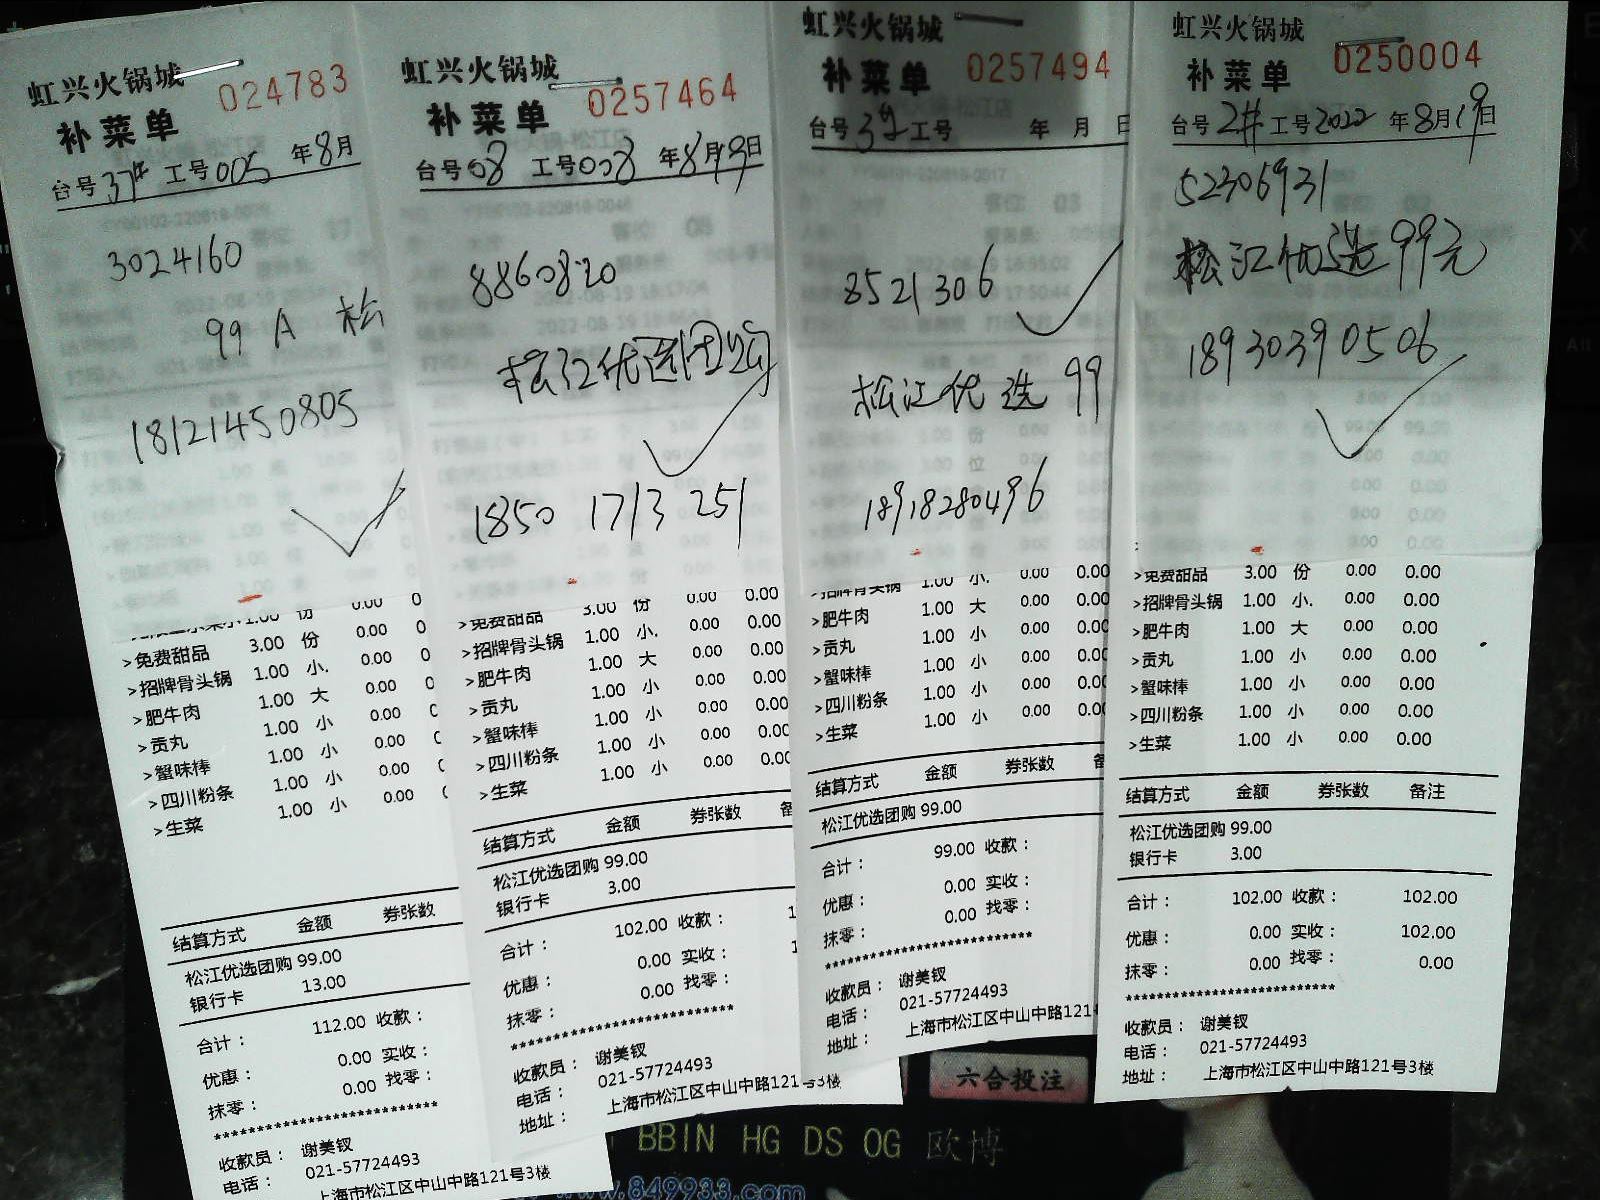 虹兴火锅城
024783
补菜单
台号 37# 工号 005 年 8月
3024160
99 A 松
18121450805
免费甜品 3.00 份 0.00 0
>招牌骨头锅 1.00 小. 0.00 0
>肥牛肉 1.00 大 0.00 0
>贡丸 1.00 小 0.00
>蟹味棒 1.00 小 0.00
>四川粉条 1.00 小 0.00
>生菜 1.00 小 0.00
结算方式 金额 券张数
松江优选团购 99.00
银行卡 13.00
合计： 112.00 收款：
优惠： 0.00 实收：
抹零： 0.00 找零：
**************************
收款员： 谢美钗
电话： 021-57724493
上海市松江区中山中路121号3楼
虹兴火锅城
0257464
补菜单
台号 08 工号 008 年 8月19日
8860820
松江优选团购
1850 1713 251
>免费甜品 3.00 份 0.00 0.00
>招牌骨头锅 1.00 小. 0.00 0.00
>肥牛肉 1.00 大 0.00 0.00
>贡丸 1.00 小 0.00 0.00
>蟹味棒 1.00 小 0.00 0.00
>四川粉条 1.00 小 0.00 0.00
>生菜 1.00 小 0.00 0.00
结算方式 金额 券张数 备
松江优选团购 99.00
银行卡 3.00
合计： 102.00 收款： 1
优惠： 0.00 实收： 1
抹零： 0.00 找零：
**************************
收款员： 谢美钗
电话： 021-57724493
地址： 上海市松江区中山中路121号3楼
虹兴火锅城
0257494
补菜单
台号 3# 工号 年 月 日
8521306
松江优选 99
18918280496
>招牌骨头锅 1.00 小. 0.00 0.00
>肥牛肉 1.00 大 0.00 0.00
>贡丸 1.00 小 0.00 0.00
>蟹味棒 1.00 小 0.00 0.00
>四川粉条 1.00 小 0.00 0.00
>生菜 1.00 小 0.00 0.00
结算方式 金额 券张数 备
松江优选团购 99.00
合计： 99.00 收款：
优惠： 0.00 实收：
抹零： 0.00 找零：
**************************
收款员： 谢美钗
电话： 021-57724493
地址： 上海市松江区中山中路121
虹兴火锅城
0250004
补菜单
台号 2# 工号 2022 年 8月19日
52306931
松江优选 99元
18930390506
>免费甜品 3.00 份 0.00 0.00
>招牌骨头锅 1.00 小. 0.00 0.00
>肥牛肉 1.00 大 0.00 0.00
>贡丸 1.00 小 0.00 0.00
>蟹味棒 1.00 小 0.00 0.00
>四川粉条 1.00 小 0.00 0.00
>生菜 1.00 小 0.00 0.00
结算方式 金额 券张数 备注
松江优选团购 99.00
银行卡 3.00
合计： 102.00 收款： 102.00
优惠： 0.00 实收： 102.00
抹零： 0.00 找零： 0.00
**************************
收款员： 谢美钗
电话： 021-57724493
地址： 上海市松江区中山中路121号3楼
六合投注
BBIN HG DS OG 欧博
www.849933.com